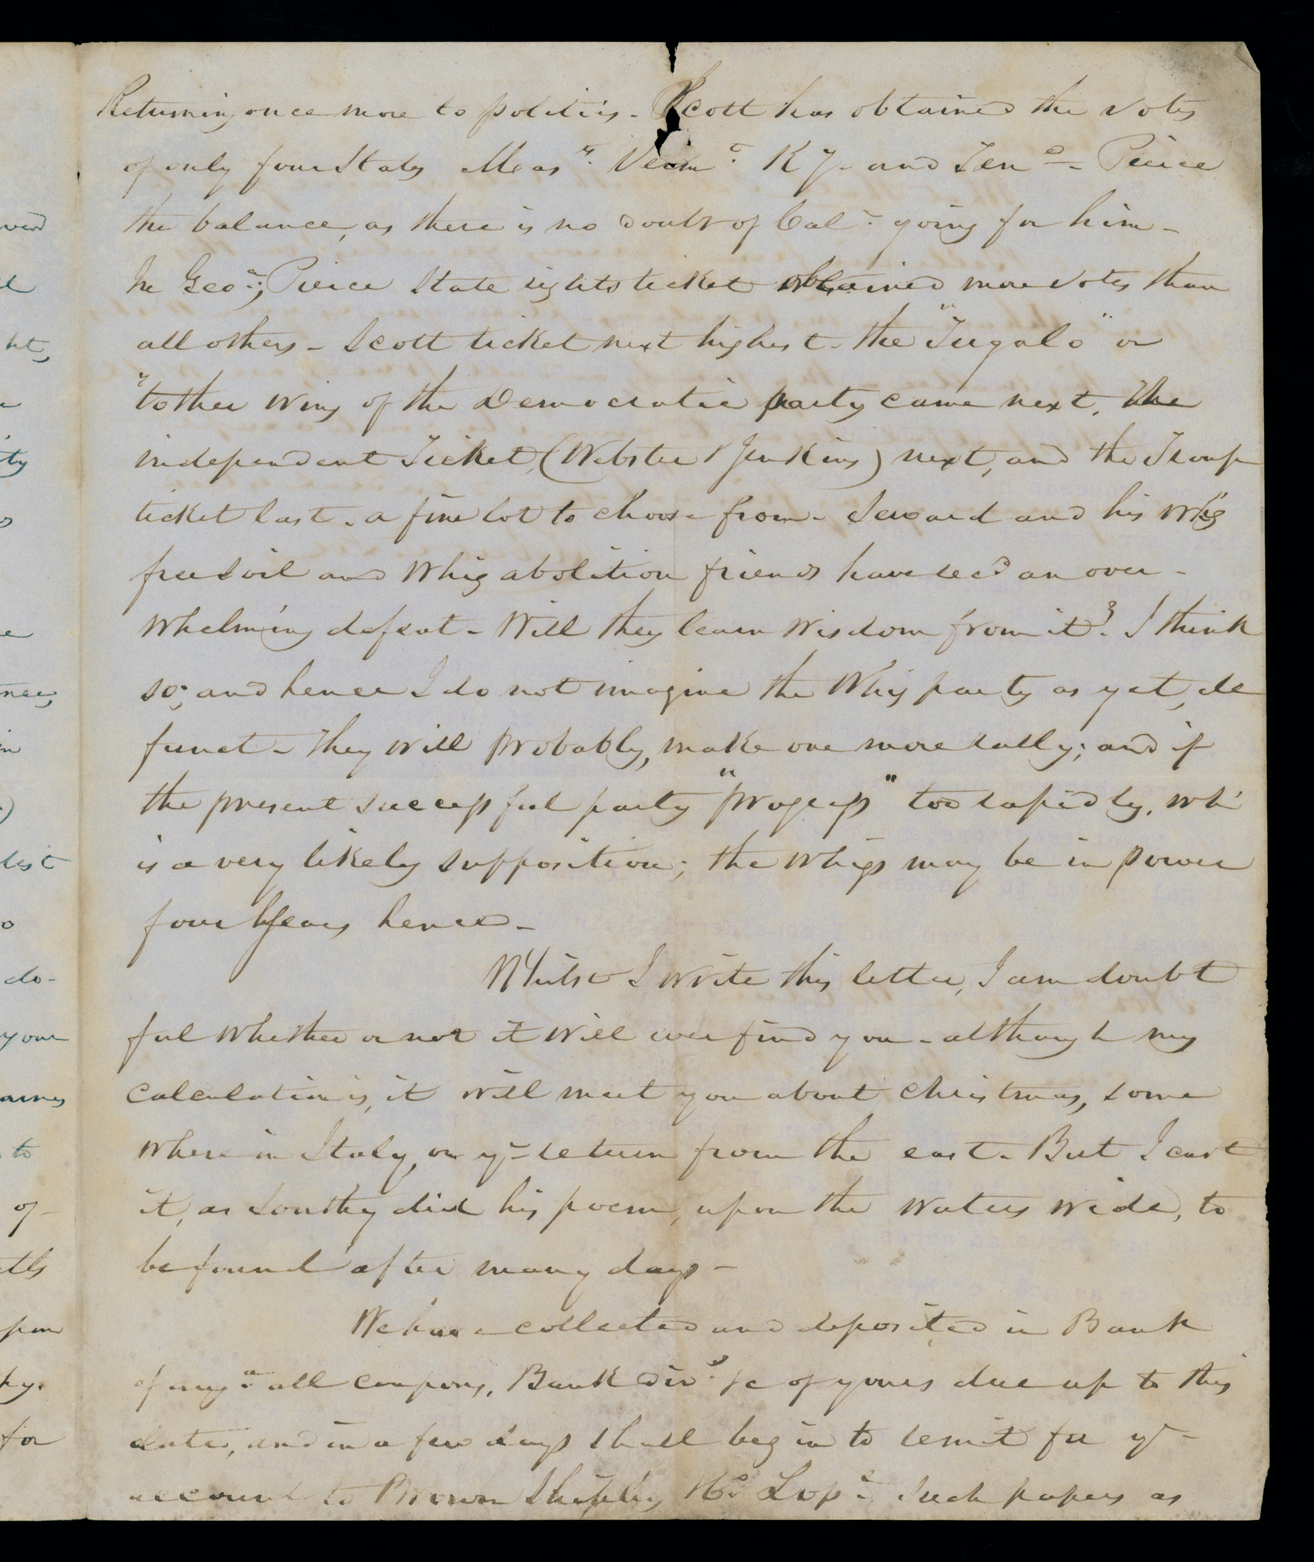 Returning once more to politics - Scott has obtained the votes
of only four States Mass.ts Verm.t Ky - and Ten.e - Peirce
the balance, as there is no doubt of Cal.a going for him -
In Geo.a; Peirce State rights ticket obtained more votes than
all others - Scott ticket next highest - the "Tugalo" or
"tother wing of the Democratic party came next, The
independent Ticket, (Webster & Jenkins) next, and the Troup
ticket last - a fine lot to choose from - Seward and his Whig
free soil and Whig abolition friends have recd an over-
whelming defeat - Will they learn wisdom from it? I think
so; and hence I do not imagine the Whig party as yet, de
funct - They will probably, make one more rally; and if
the present successful party "progress" too rapidly, whi
is a very likely supposition; the Whigs may be in power
four Years hence -
Whilst I write this letter, I am doubt
ful whether or not it will ever find you - although my
calculation is, it will meet you about christmas, some
where in Italy, on yr return from the east - But I cast
it, as Southey did his poem, upon the waters wide, to
be found after many days -
We have collected and deposited in Bank
of all coupons, Bank Divds &c of yours due up to this
date, and in a few days shall begin to remit for yr
account to Brown Shipley & Co Lvpl. Such papers as
ved
ht,
ity
nce,
in
)
list
o
do-
your
to
of
upon
for